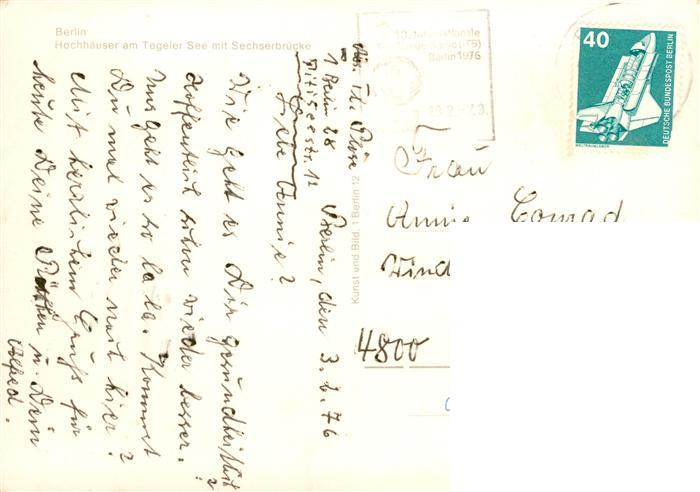 Berlin
Hochhäuser am Tegeler See mit Sechserbrücke
1 Berlin 28
12
Berlin, den 3. 2. 76
Liebe Annie?
Wie geht es Dir gesundheitlich?
Hoffentlich schon wieder besser.
Uns geht es so la la. Kommst
Du mal wieder nach hier?
Mit herzlichem Gruß für
heute Deine u. Dein
Alfred.
Kunst und Bild, 1 Berlin 12
10. Internationale
Berlin 1976
40
DEUTSCHE BUNDESPOST BERLIN
WELTRAUMLABOR
Frau
Annie Conrad
Wind
4800